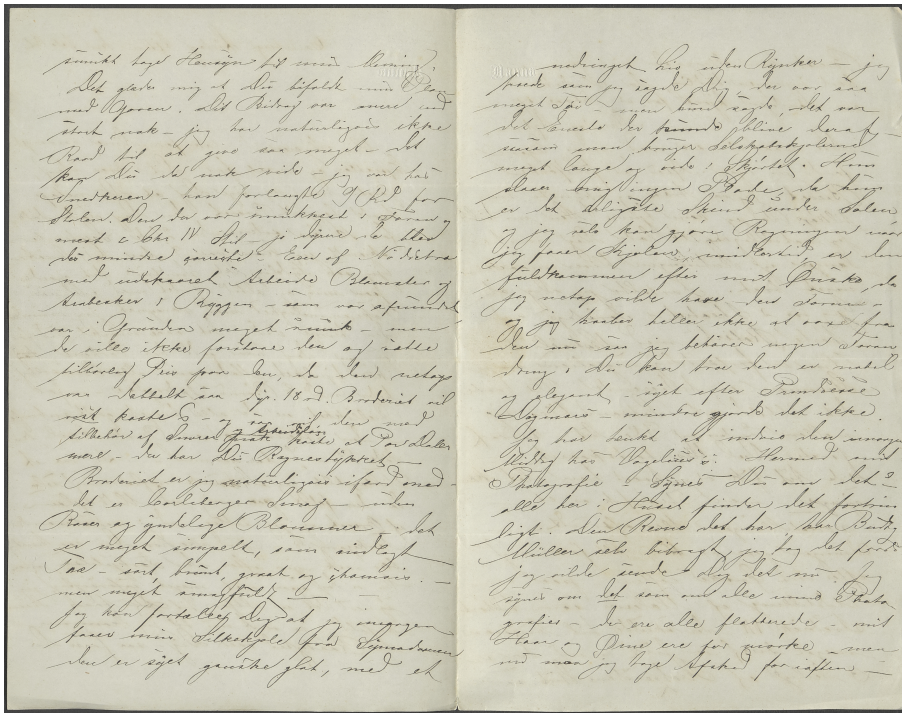 smukt tage Hensyn til min Mening,
Det glæder mig at Du bifaldt min Plan
med Gaven. Dit Bidrag var mere end
stort nok – jeg har naturligvis ikke
Raad til at give saa meget – det
kan Du da nok vide – jeg var hos
Snedkeren – han forlangte 9 Rd for
Stolen. Den da var smukkest i Form og
mest à Chr IV Stil – jo dyrere de blev
des mindre Eger af
med udskaaret Arbeide Blomster og
Arabesker i Ryggen – som var afrundet
var i Grunden meget smuk – men
de ville ikke forstaae den og sætte
tilbørlig Priis paa den, da den netop
var dobbelt saa dyr. 18 rd. Broderiet vil
vist koste 5 – og saa vil den med
tilbehør af Snoren og Arbeidsløn koste et Par Daler
mere – der har Du Regnestykket –
Broderiet er jeg naturligvis ifærd med –
det er Carlsberger Smag – uden
Roser og yndelige Blommer – det
er meget simpelt, som indlagt
Træ – sort, brunt, graat og chamois. –
men meget smagfuldt –
Jeg kan fortælle Dig at jeg imorgen
faaer min Silkekjole fra Syersken
den er syet ganske glat, med et
nedringet Liv uden Rynker – jeg
troede som jeg sagde Dig der var saa
meget Tøi – men hun sagde, det var
det Eneste der kunde blive deraf –
saasom man bruger Selskabskjolerne
meget lange og vide i Skjørtet. Hun
slaaer mig ingen Plade, da hun
er det ærligste Skind under Solen
og jeg selv kan gjøre Regningen naar
jeg faaer Kjolen, imidlertid, er den
fuldkommen efter mit Ønske da
jeg netop vilde have den Form –
og jeg haaber heller ikke at voxe fra
den nu saa jeg behøver nogen Foran
dring. Du kan troe den er nobel
og elegant – syet efter Prindsesse
Dagmars – mindre gjorde det ikke.
Jeg har tænkt at indvie den imorgen
Middag hos Hermed mit
Photografie. Synes Du om det? –
alle her i Huset finder det fortrin
ligt. Den Rene det har, har Budtz
Müller selv bibragt, jeg tog det fordi
jeg vilde sende Dig det nu. Jeg
synes om det som om alle mine Photo
grafier – de ere alle flatterede – mit
Haar og Øine ere for mørke – men
nu maa jeg tage Afsked for iaften –